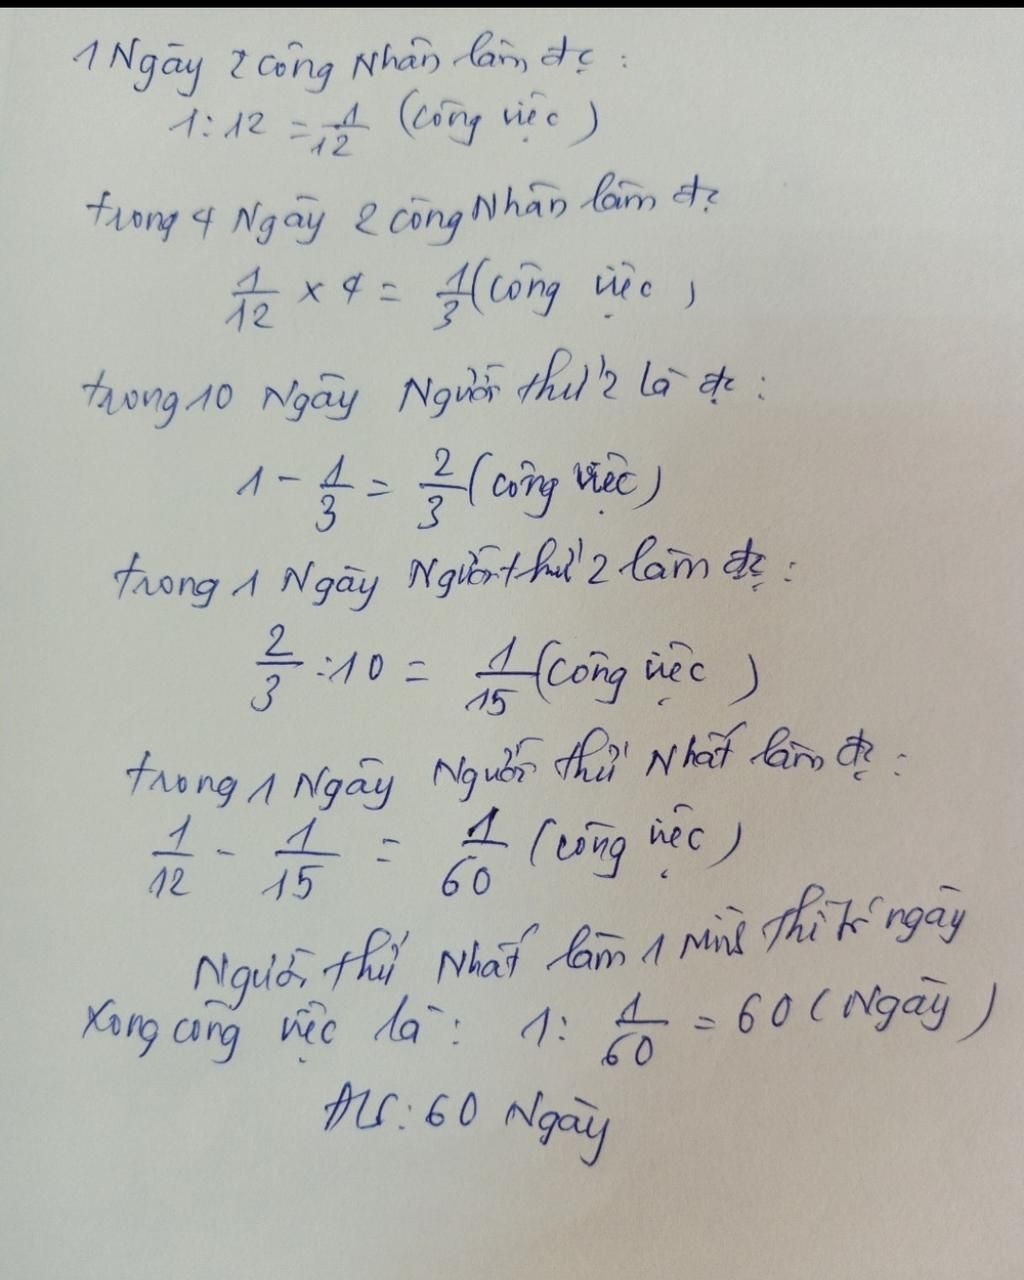 1 Ngày 2 công Nhân làm đc :
1 : 12 = 1/12 (công việc)
trong 4 Ngày 2 công Nhân làm đc
1/12 x 4 = 1/3 (công việc)
trong 10 Ngày Người thứ 2 là đc :
1 - 1/3 = 2/3 (công việc)
trong 1 Ngày Người thứ 2 làm đc :
2/3 : 10 = 1/15 (công việc)
trong 1 Ngày Người thứ Nhất làm đc :
1/12 - 1/15 = 1/60 (công việc)
Người thứ Nhất làm 1 mình thì ngày
xong công việc là : 1 : 1/60 = 60 (Ngày)
ĐS : 60 Ngày